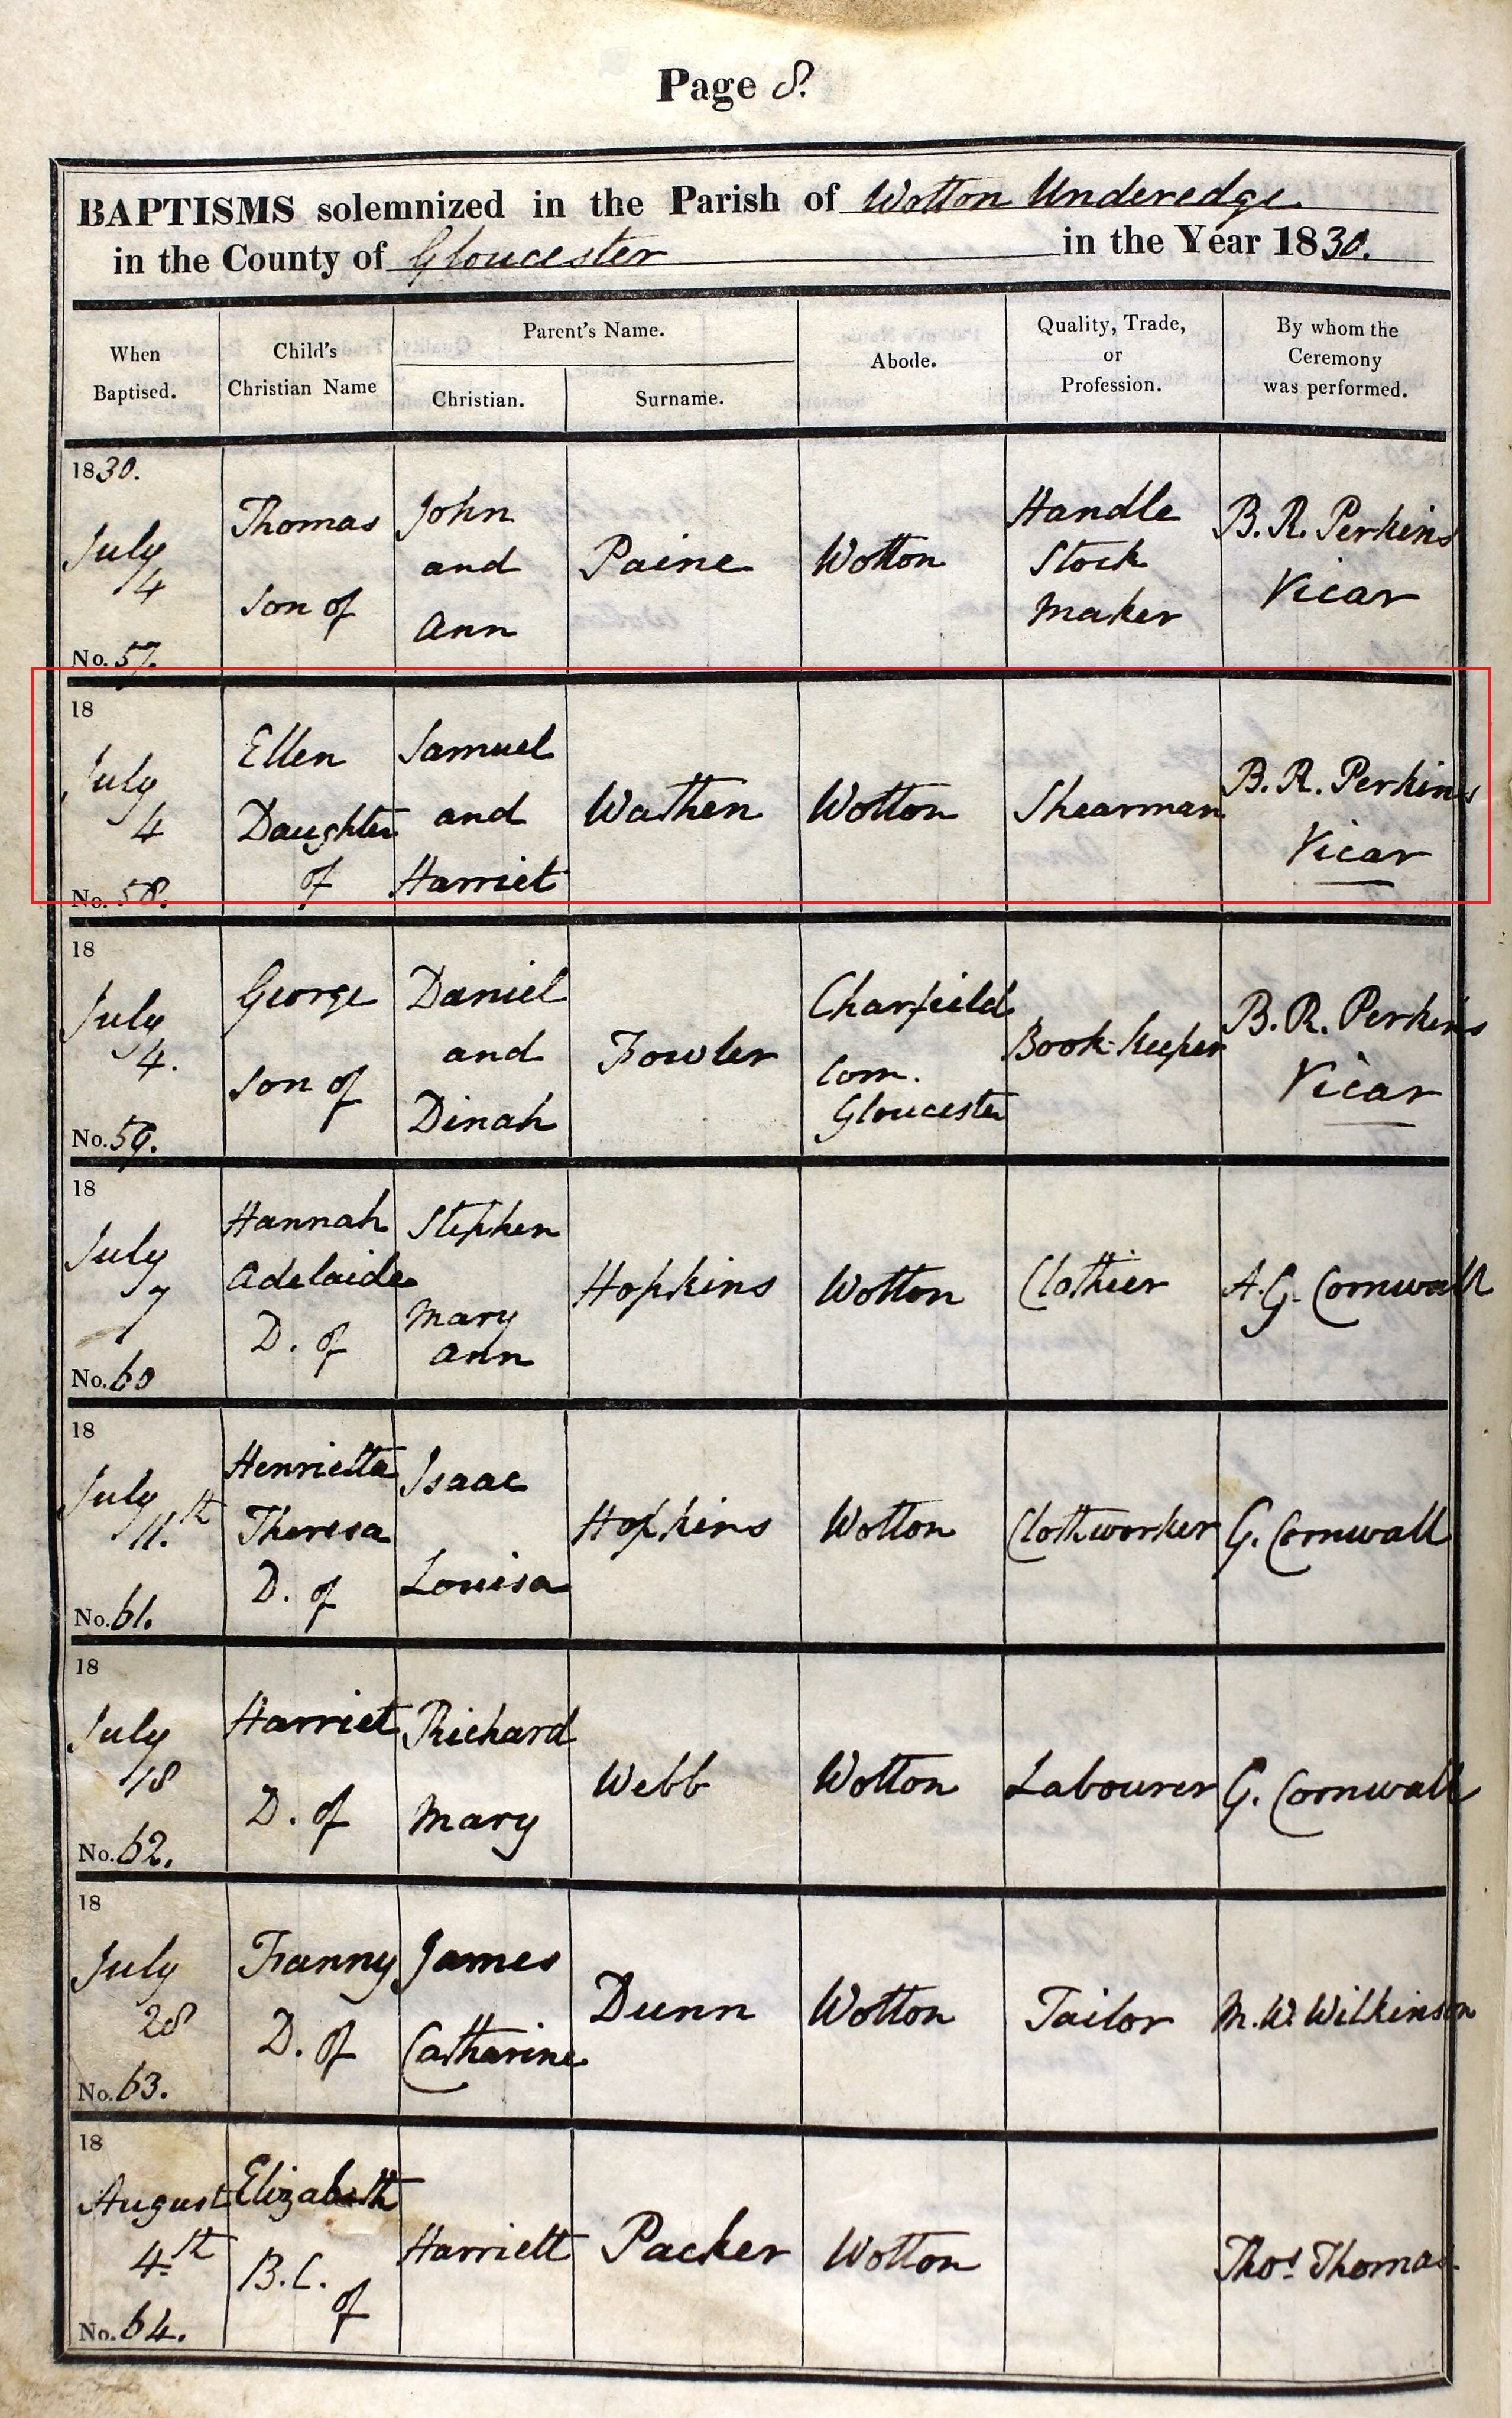 Page 8.
BAPTISMS solemnized in the Parish of Wotton Underedge
in the County of Gloucester in the Year 1830.
When Baptised. Child's Christian Name Parent's Name. Christian. Surname. Abode. Quality, Trade, or Profession. By whom the Ceremony was performed.
1830.
July 4
No. 57.
Thomas
son of
John
and
Ann
Paine
Wotton
Handle
Stock
Maker
B. R. Perkins
Vicar
18
July
4
No. 58.
Ellen
Daughter
of
Samuel
and
Harriet
Wathen
Wotton
Shearman
B. R. Perkins
Vicar
18
July
4.
No. 59.
George
son of
Daniel
and
Dinah
Fowler
Charfield
Com.
Gloucester
Book-keeper
B. R. Perkins
Vicar
18
July
7
No. 60
Hannah
Adelaide
D. of
Stephen
Mary
Ann
Hopkins
Wotton
Clothier
A. G. Cornwall
18
July
11.th
No. 61.
Henrietta
Theresa
D. of
Isaac
Louisa
Hopkins
Wotton
Clothworker
G. Cornwall
18
July
18
No. 62.
Harriet
D. of
Richard
Mary
Webb
Wotton
Labourer
G. Cornwall
18
July
28
No. 63.
Fanny
D. of
James
Catharine
Dunn
Wotton
Tailor
M. W. Wilkinson
18
August
4th
No. 64.
Elizabeth
B. C.
of
Harriett
Packer
Wotton
Thos. Thomas